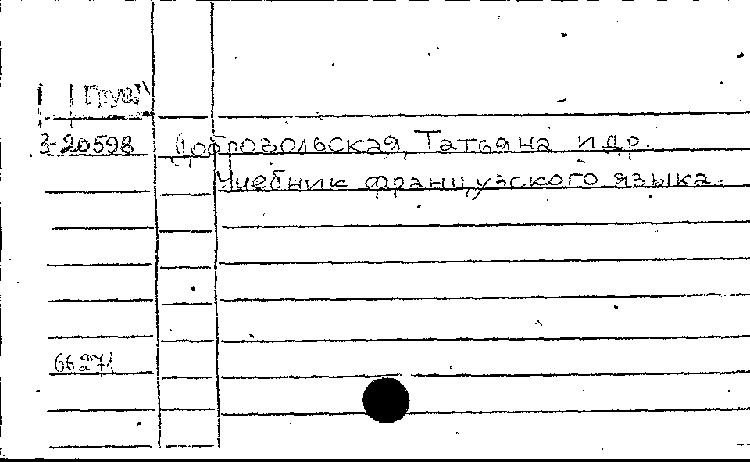 Груз
3-20598 Добровольская, Татьяна и др.
Учебник французского языка.
66271